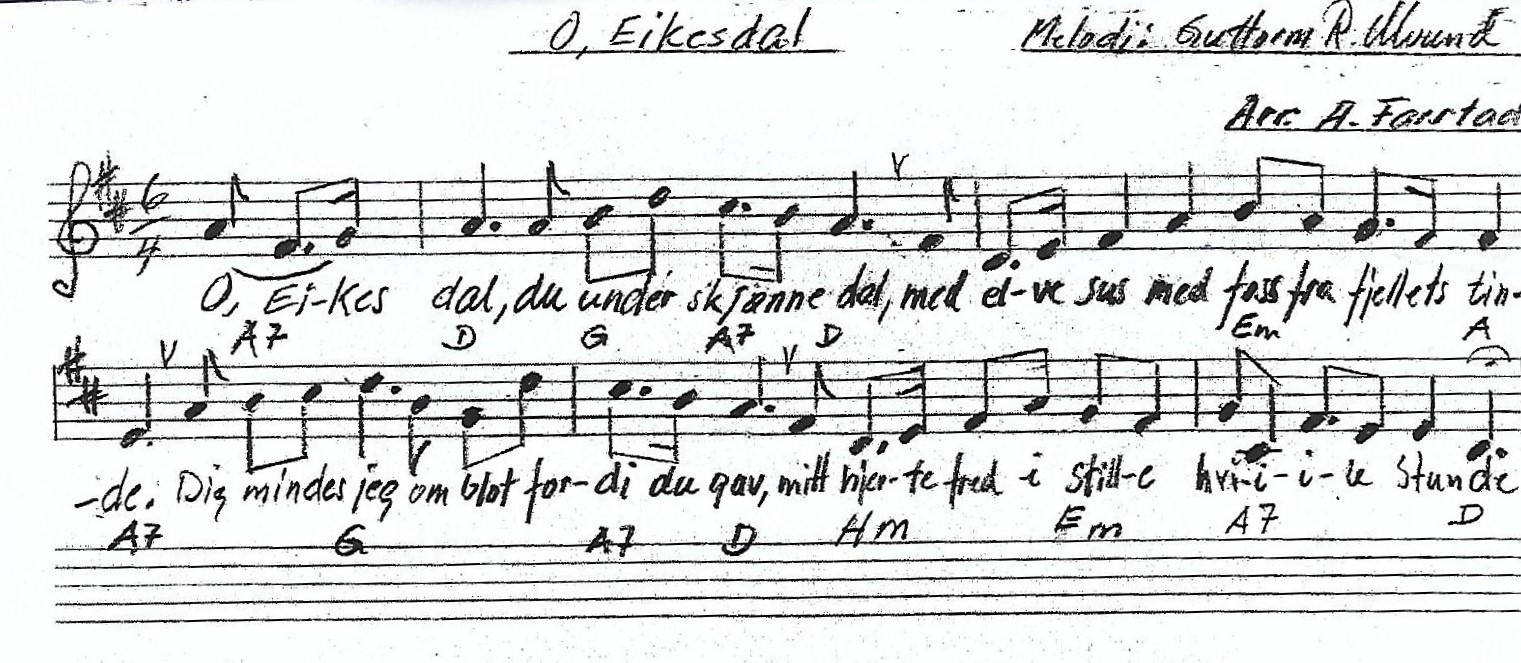 O, Eikesdal
Melodi: Guttorm R.
Arr. A. Farstad
6/4
O, Ei-kes dal, du under skjønne dal, med el-ve sus med foss fra fjellets tin-
A7 D G A7 D Em A
-de. Dig mindes jeg om blot for-di du gav, mitt hjer-te fred i still-e hvi-i-i-le stunde
A7 G A7 D Hm Em A7 D